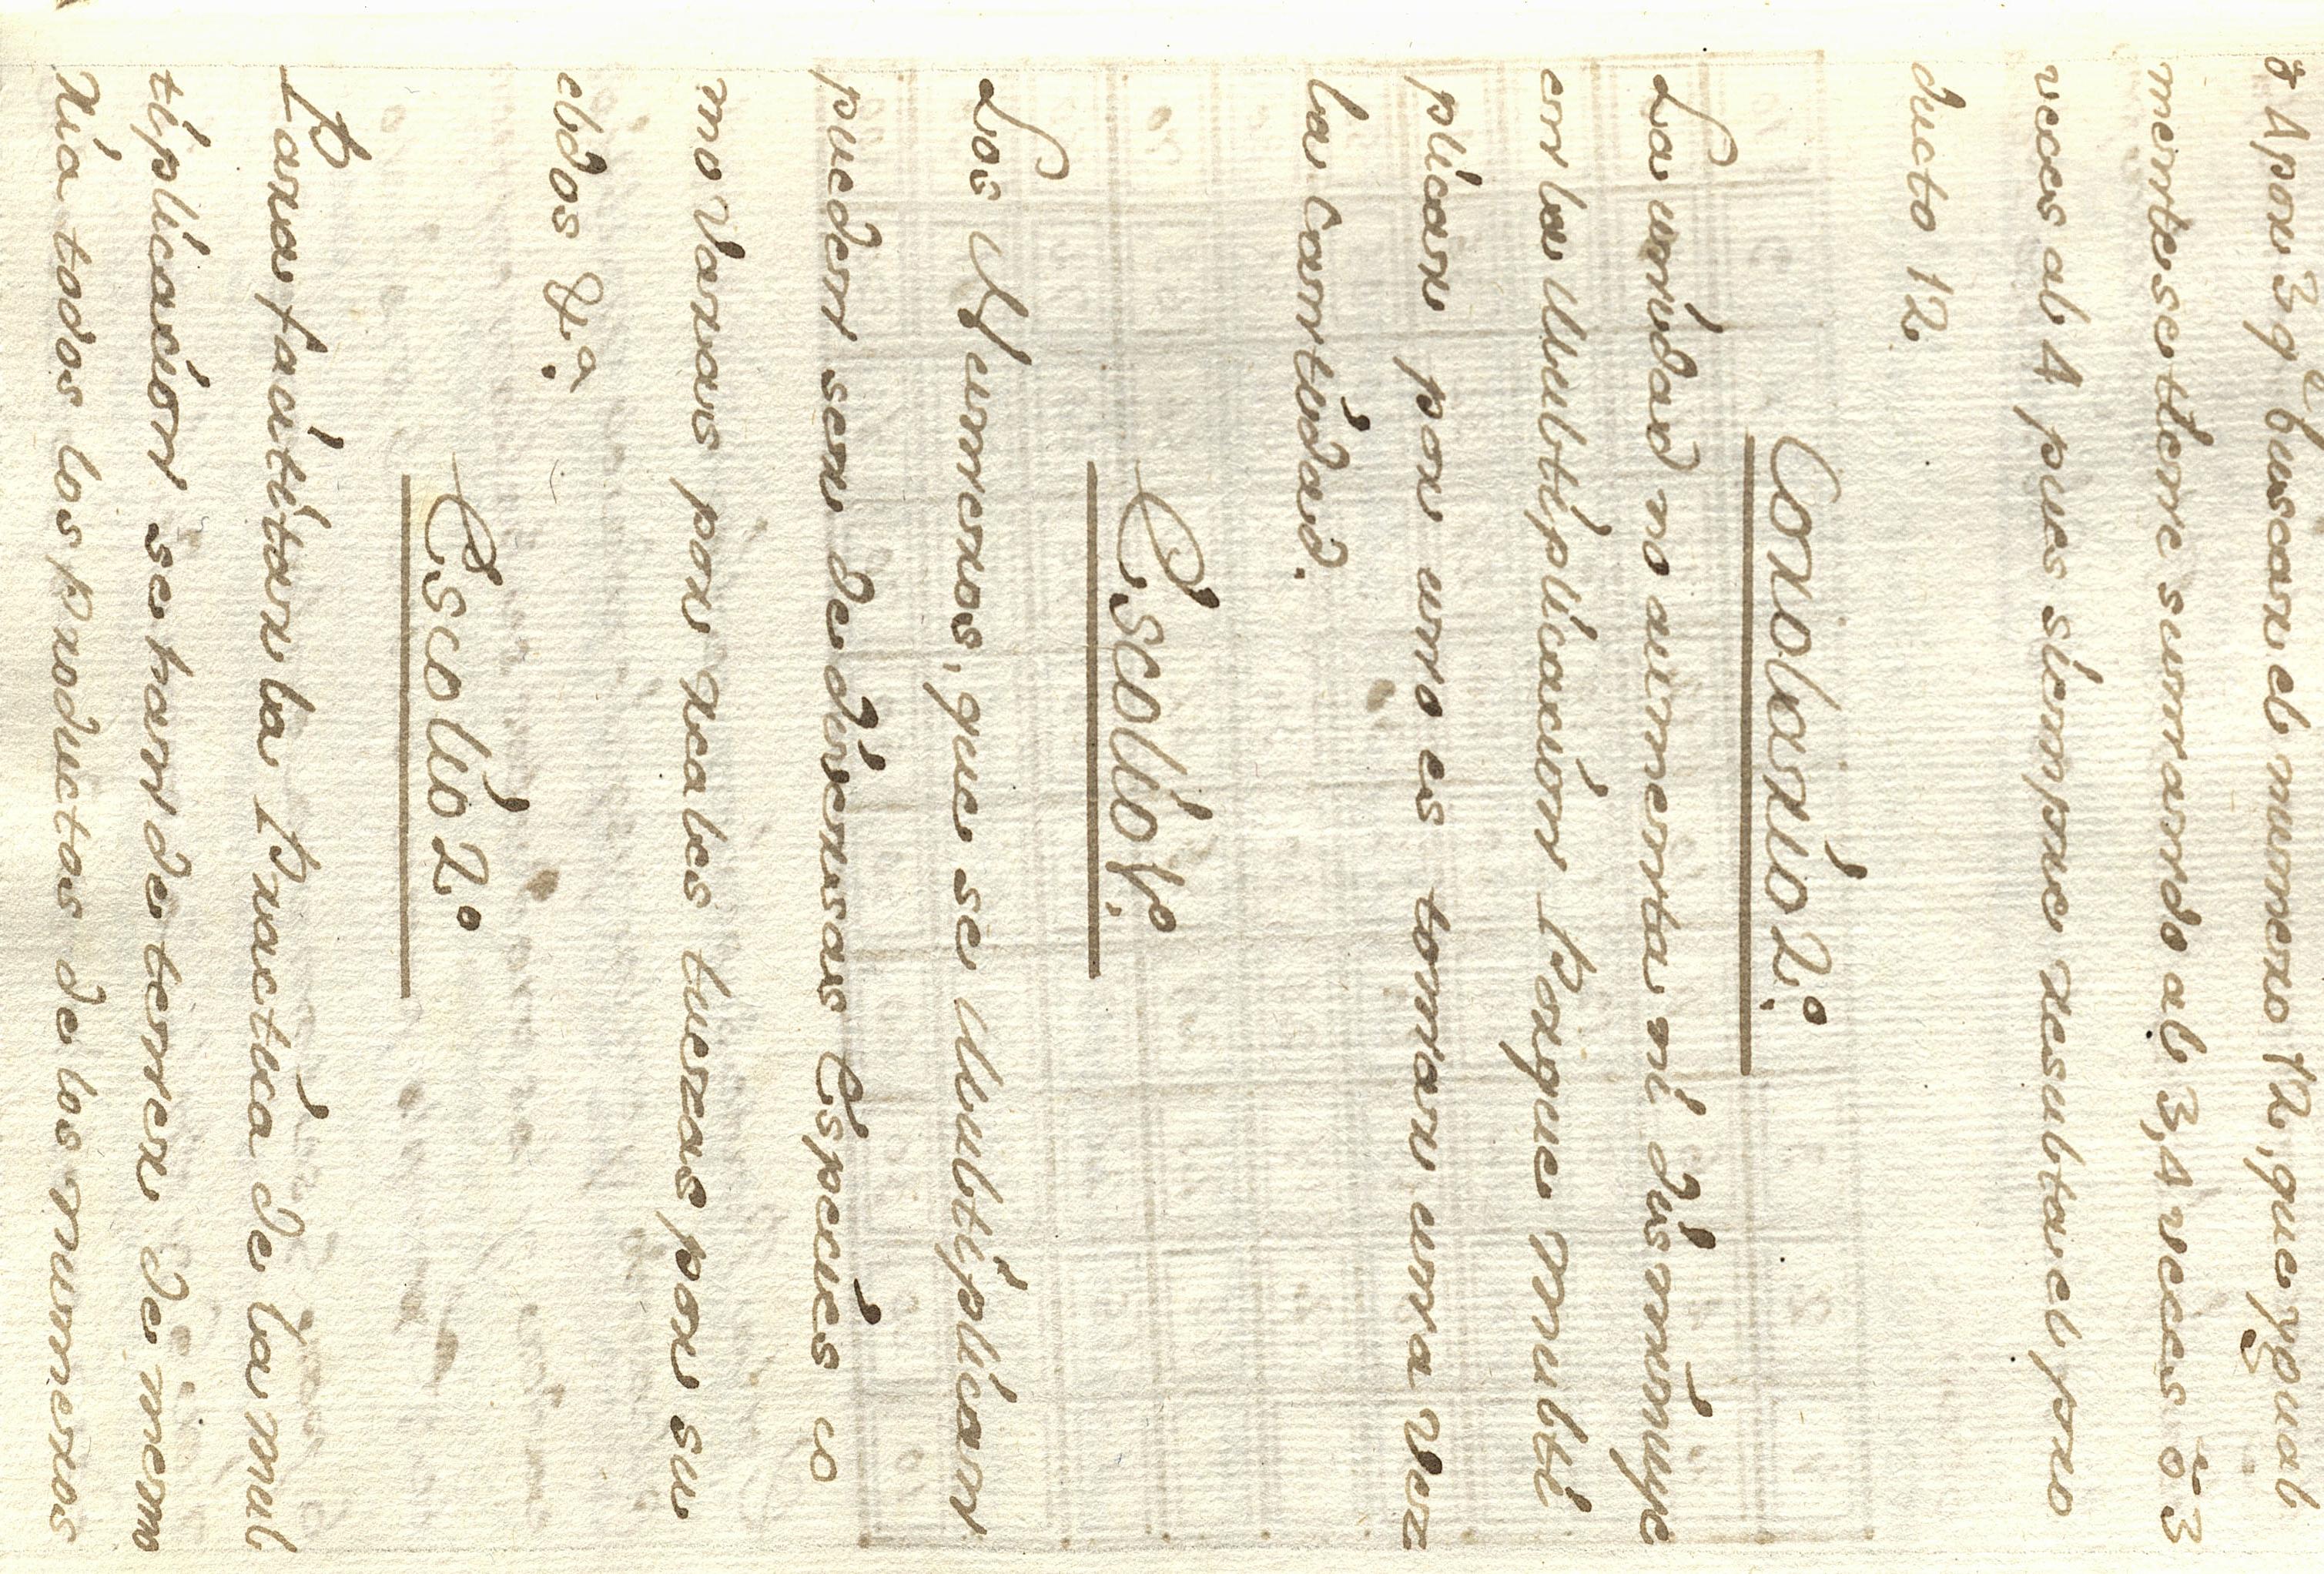 ó 4 por 3 q.e buscar el numero 12, que ygual
mente se tiene sumando al 3, 4 veces ó 3
veces al 4 pues siempre resulta el pro
ducto 12.
Corolario 2.º
La unidad no aumenta ni disminuye
en la Multiplicacion Porque multi
plicar por uno es tomar una vez
la Cantidad.
Escolio 1.º
Los Numeros, que se Multiplican
pueden ser de diversas Especies co
mo Varas por reales tuesas por su
eldos &.a
Escolio 2.º
Para facilitar la Practica de la mul
tiplicacion se han de tener de memo
ria todos los productos de los numeros